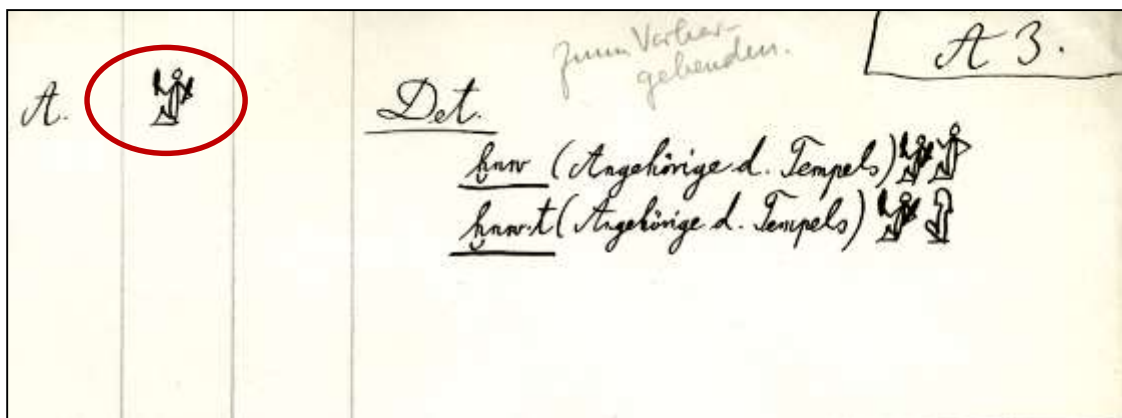 Zum Vorher-
gehenden.
A 3.
A.
Det.
ḫnw (Angehörige d. Tempels)
ḫnw.t (Angehörige d. Tempels)